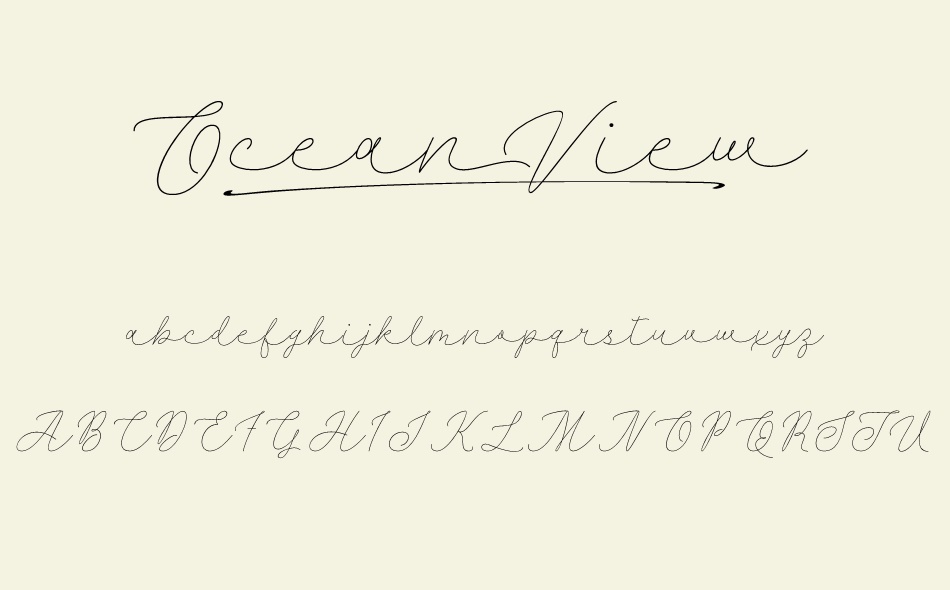 Ocean View
abcdefghijklmnopqrstuvwxyz
ABCDEFGHIJKLMNOPQRSTU